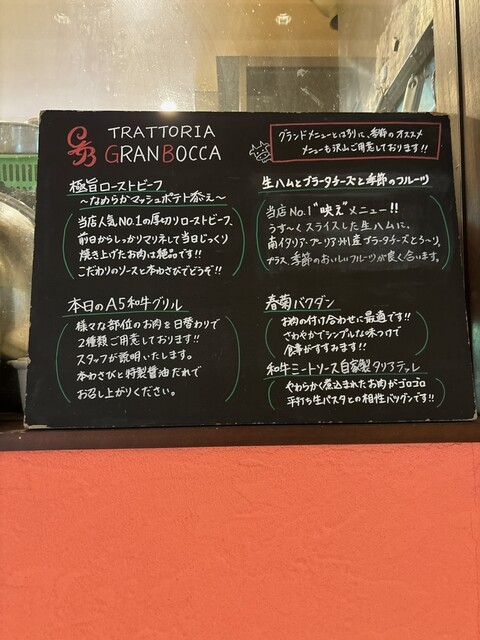 TRATTORIA
GRANBOCCA
グランドメニューとは別に、季節のオススメ
メニューも沢山ご用意しております!!
極旨ローストビーフ
〜なめらかマッシュポテト添え〜
当店人気NO.1の厚切りローストビーフ、
前日からしっかりマリネして当日じっくり
焼き上げたお肉は絶品です!!
こだわりのソースと本わさびでどうぞ!!
本日のA5和牛グリル
様々な部位のお肉を日替わりで
2種類ご用意しております!!
スタッフが説明いたします。
本わさびと特製醤油だれで
お召し上がりください。
生ハムとブラータチーズと季節のフルーツ
当店No.1"映え"メニュー!!
うす〜くスライスした生ハムに、
南イタリア・プーリア州産ブラータチーズとろ〜り。
プラス、季節のおいしいフルーツが良く合います。
春菊バクダン
お肉の付け合わせに最適です!!
さわやかでシンプルな味つけで
食事がすすみます!!
和牛ミートソース自家製タリアテッレ
やわらかく煮込まれたお肉がゴロゴロ
平打ち生パスタとの相性バツグンです!!